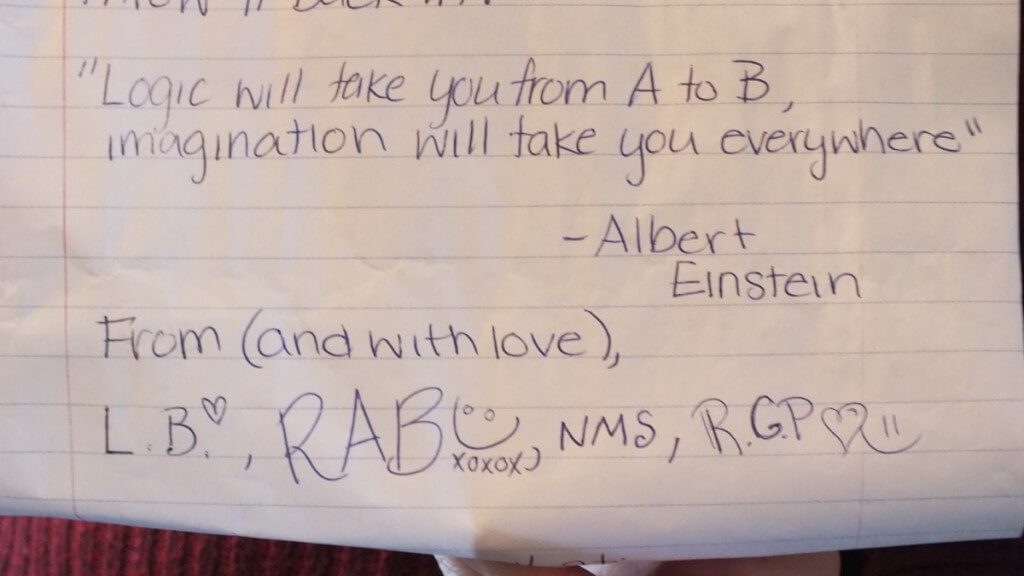 "Logic will take you from A to B,
imagination will take you everywhere"
- Albert
Einstein
From (and with love),
L.B.♡, RAB xoxox, NMS, R.G.P♡